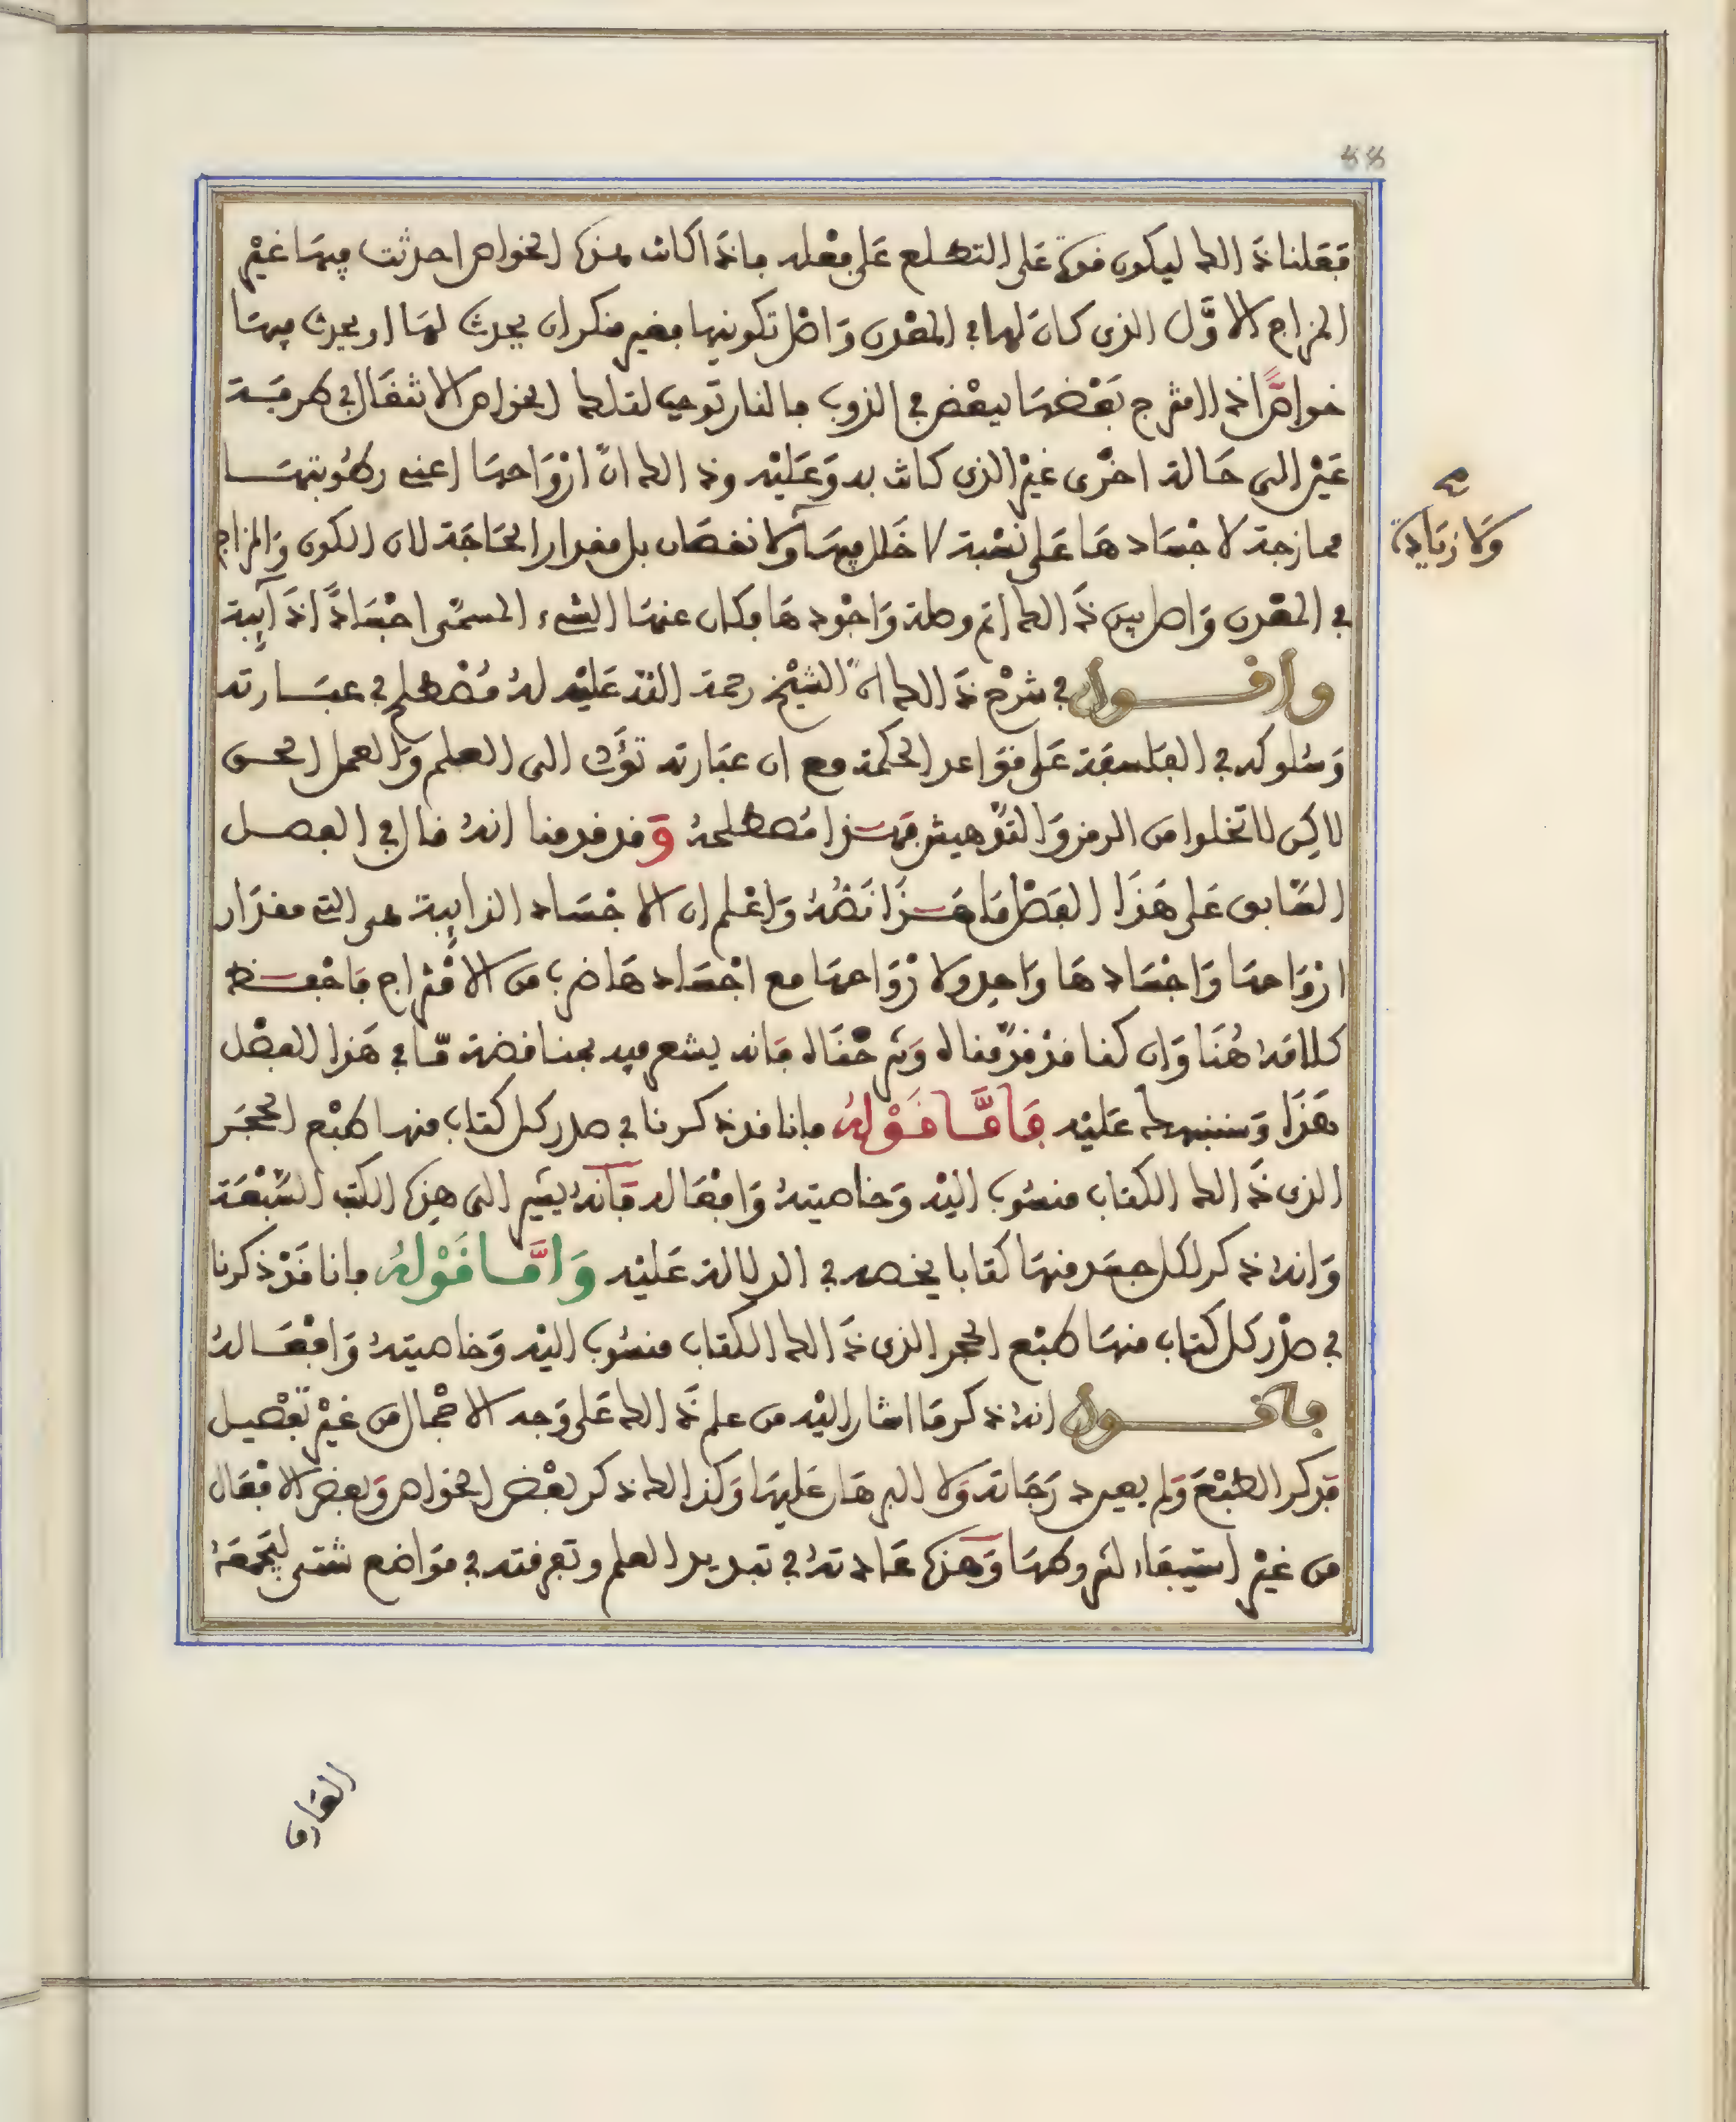 ففعلنا ذالك ليكون قوة على التطلع على فعله فإذا كانت هذه الخواص احدثت فيها غير
المزاج الاوّل الذي كان لها في المعدن واصل تكوينها فغير منكر ان يحدث لها او يحدث فيها
خواصّا اذ امتزج بعضها ببعض في الذوب بالنار توجب لتلك الخواص الانتقال في طرفة
عين الى حالة اخرى غير الذي كانت به وعليه وذالك انّ ارواحها اعني رطوبتها
ممازجة لاجسادها على نسبة لا خلل فيها ولا نقصان بل مقدار الحاجة لان الكون والمزاج
ولا زيادة صح
في المعدن واصل بين ذالك اتم وصلة واجودها فكان عنها الشيء المسمّى اجسادًا ذآئبة
واقول في شرح ذالك انّ الشيخ رحمة الله عليه له مصطلح في عبارته
وسلوكه في الفلسفة على قواعد الحكمة مع ان عبارته تؤدي الى العلم والعمل الحسن
لاكن لا تخلوا من الرمز والتدهيش فهذا مصطلحه وقد قدمنا انه قال في الفصل
السّابق على هذا الفصل ما هذا نصّه واعلم ان الاجساد الذائبة هي التي مقدار
ارواحها واجسادها واحد ولارواحها مع اجسادها ضرب من الامتزاج فاحفظ
كلامه هُنا وان كنا قد قدّمناه وشرحناه فانه يشعر فيه بمناقضة مّا في هذا الفصل
هذا وسننبهك عليه فامّا قوله فإنا قد ذكرنا في صدر كل كتاب منها طبع الحجر
الذي ذالك الكتاب منسوب اليه وخاصيته وافعاله فانه يشير الى هذه الكتب السّبعة
وانه ذكر لكل حجر منها كتابا يخصه في الدلالة عليه وامّا قوله فإنا قد ذكرنا
في صدر كل كتاب منها طبع الحجر الذي ذالك الكتاب منسوب اليه وخاصيته وافعاله
فاقول انه ذكر ما اشار اليه من علم ذالك على وجه الاجمال من غير تفصيل
فذكر الطبع ولم يعين درجاته ولا البرهان عليها وكذالك ذكر بعض الخواص وبعض الافعال
من غير استيفاء لشروطها وهذه عادته في تبديد العلم وتفرقته في مواضع شتى ليجمعه
القارئ